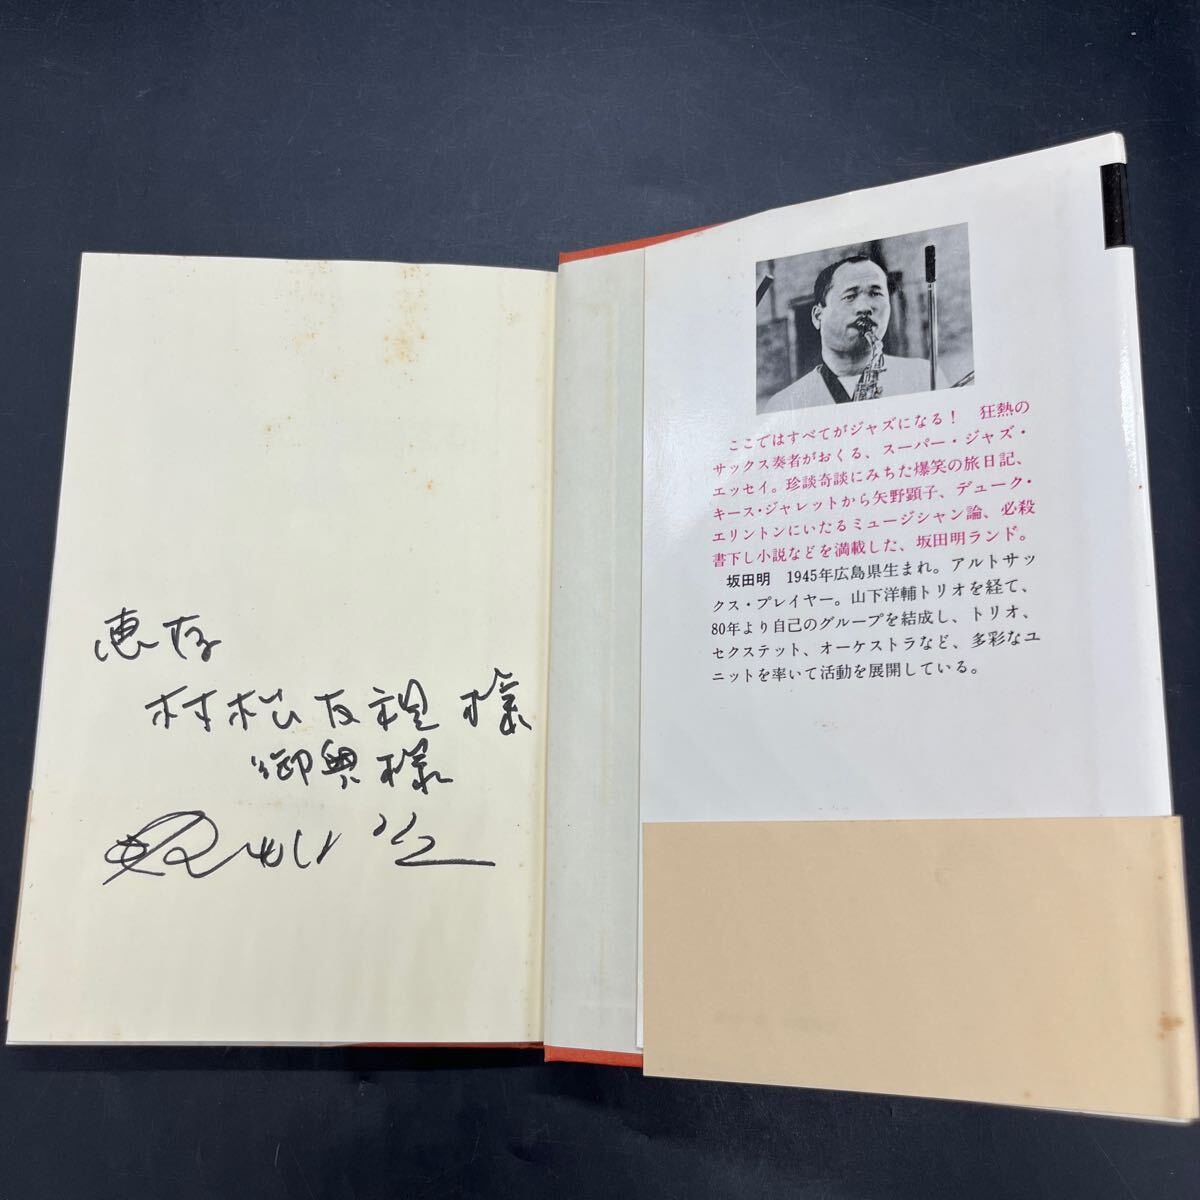 恵存
村松友視様
御奥様
ここではすべてがジャズになる！　狂熱の
サックス奏者がおくる、スーパー・ジャズ・
エッセイ。珍談奇談にみちた爆笑の旅日記、
キース・ジャレットから矢野顕子、デューク・
エリントンにいたるミュージシャン論、必殺
書下し小説などを満載した、坂田明ランド。
坂田明　1945年広島県生まれ。アルトサッ
クス・プレイヤー。山下洋輔トリオを経て、
80年より自己のグループを結成し、トリオ、
セクステット、オーケストラなど、多彩なユ
ニットを率いて活動を展開している。